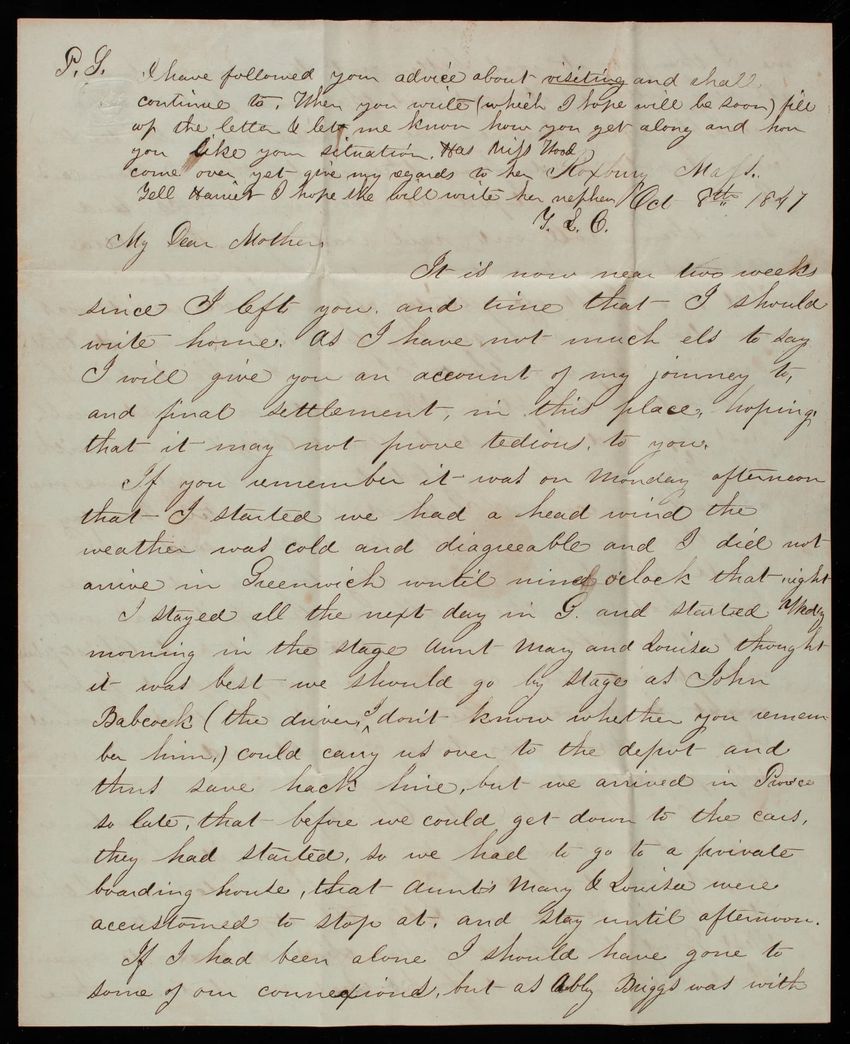 P. S. I have followed your advice about visiting and shall
continue to, When you write (which I hope will be soon) fill
up the letter & let me know how you get along and how
you like your situation. Has Miss Wood
come over yet give my regards to her Roxbury Mass.
Tell Harriet I hope she will write her nephew Oct 8th 1847
T. L. C.
My Dear Mother,
It is now near two weeks
since I left you. and time that I should
write home. As I have not much els to say
I will give you an account of my journey to,
and final settlement, in this place, hoping,
that it may not prove tedious, to you.
If you remember it was on Monday afternoon
that I started we had a head wind the
weather was cold and diagreeable and I did not
arrive in Greenwich until nine o'clock that night
I stayed all the next day in G. and started
morning in the stage Aunt Mary and Louisa thought
it was best we should go by stage as John
Babcock (the driver, I don't know whether you remem
ber him,) could carry us over to the depot and
thus save hack hire, but we arrived in Prov'ce
so late, that before we could get down to the cars,
they had started, so we had to go to a private
boarding house, that Aunts Mary & Louisa were
accustomed to stop at, and stay until afternoon.
If I had been alone I should have gone to
some of our connexions, but as Abby Briggs was with